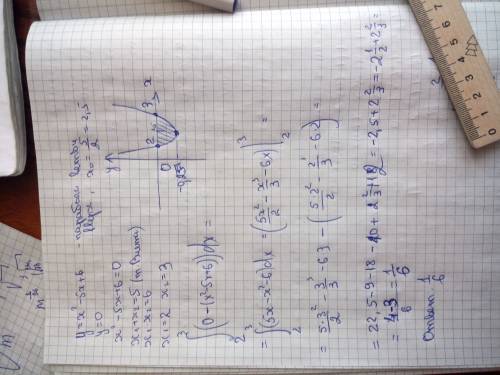 y=x²-5x+6 - парабола ветви
вверх, x₀=5/2=2,5
y=0
x²-5x+6=0
x₁+x₂=5 (т Виета)
x₁·x₂=6
x₁=2 x₂=3
y
x
2
3
0
-0,25
∫₂³(0-(x²-5x+6))dx=
=∫₂³(5x-x²-6)dx=(5x²/2-x³/3-6x)|₂³=
=5·3²/2-3³/3-6·3-(5·2²/2-2³/3-6·2)=
=22,5-9-18-10+2 2/3+12=-2,5+2 2/3=-2 1/2+2 2/3=
=4-3/6=1/6
Ответ: 1/6
m
0 1 2 3 4 5 6 7